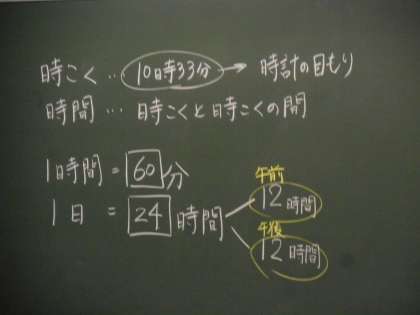 時こく…10時33分→時計の目もり
時間…時こくと時こくの間
1時間=60分
1日=24時間
午前
12時間
午後
12時間